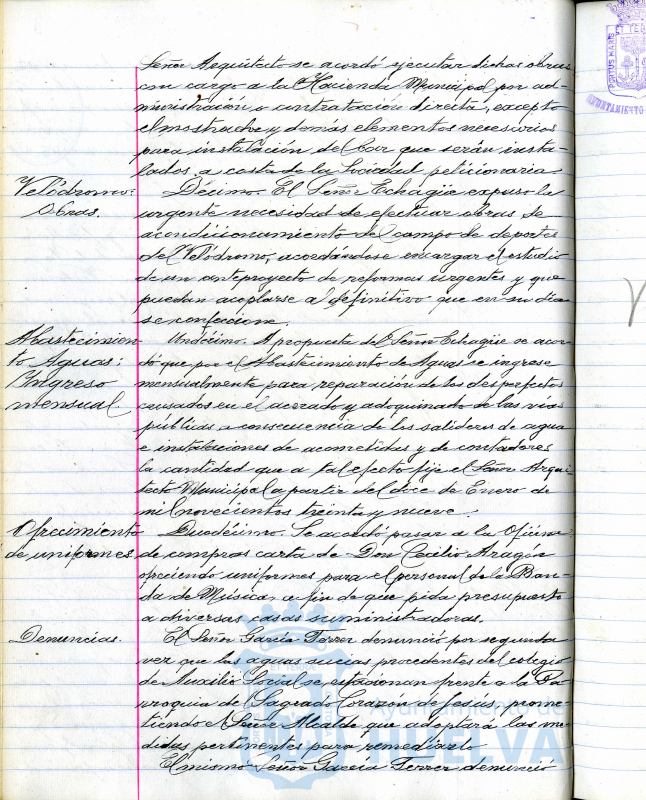 Señor Arquitecto se acordó ejecutar dichas obras
con cargo a la Hacienda Municipal por ad-
ministración o contratación directa, excepto
el mostrador y demás elementos necesarios
para instalación del bar que serán insta-
lados a costa de la Sociedad peticionaria
Velódromo:
Obras.
Décimo. El Señor Echagüe expuso la
urgente necesidad de efectuar obras de
acondicionamiento del campo de deportes
del Velódromo, acordándose encargar el estudio
de un anteproyecto de reformas urgentes y que
puedan acoplarse al definitivo que en su dia
se confeccione.
Abastecimien-
to Aguas:
Ingreso
mensual.
Undécimo. A propuesta del Señor Echagüe se acor-
dó que por el Abastecimiento de Aguas se ingrese
mensualmente para reparación de los desperfectos
causados en el acerado y adoquinado de las vias
públicas a consecuencia de los salideros de agua
e instalaciones de acometidas y de contadores
la cantidad que a tal efecto fije el Señor Arqui-
tecto Municipal a partir del doce de Enero de
mil novecientos treinta y nueve.
Ofrecimiento
de uniformes.
Duodécimo. Se acordó pasar a la Oficina
de compras carta de Don Cecilio Aragón
ofreciendo uniformes para el personal de la Ban-
da de Música, a fin de que pida presupuesto
a diversas casas suministradoras.
Denuncias.
El Señor García Ferrer denunció por segunda
vez que las aguas sucias procedentes del colegio
de Auxilio Social se estacionan frente a la Pa-
rroquia del Sagrado Corazón de Jesús, prome-
tiendo el Señor Alcalde que adoptará las me-
didas pertinentes para remediarlo
El mismo Señor García Ferrer denunció
Ayuntamiento de
HUELVA
PORTUS MARIS
AYUNTAMIENTO